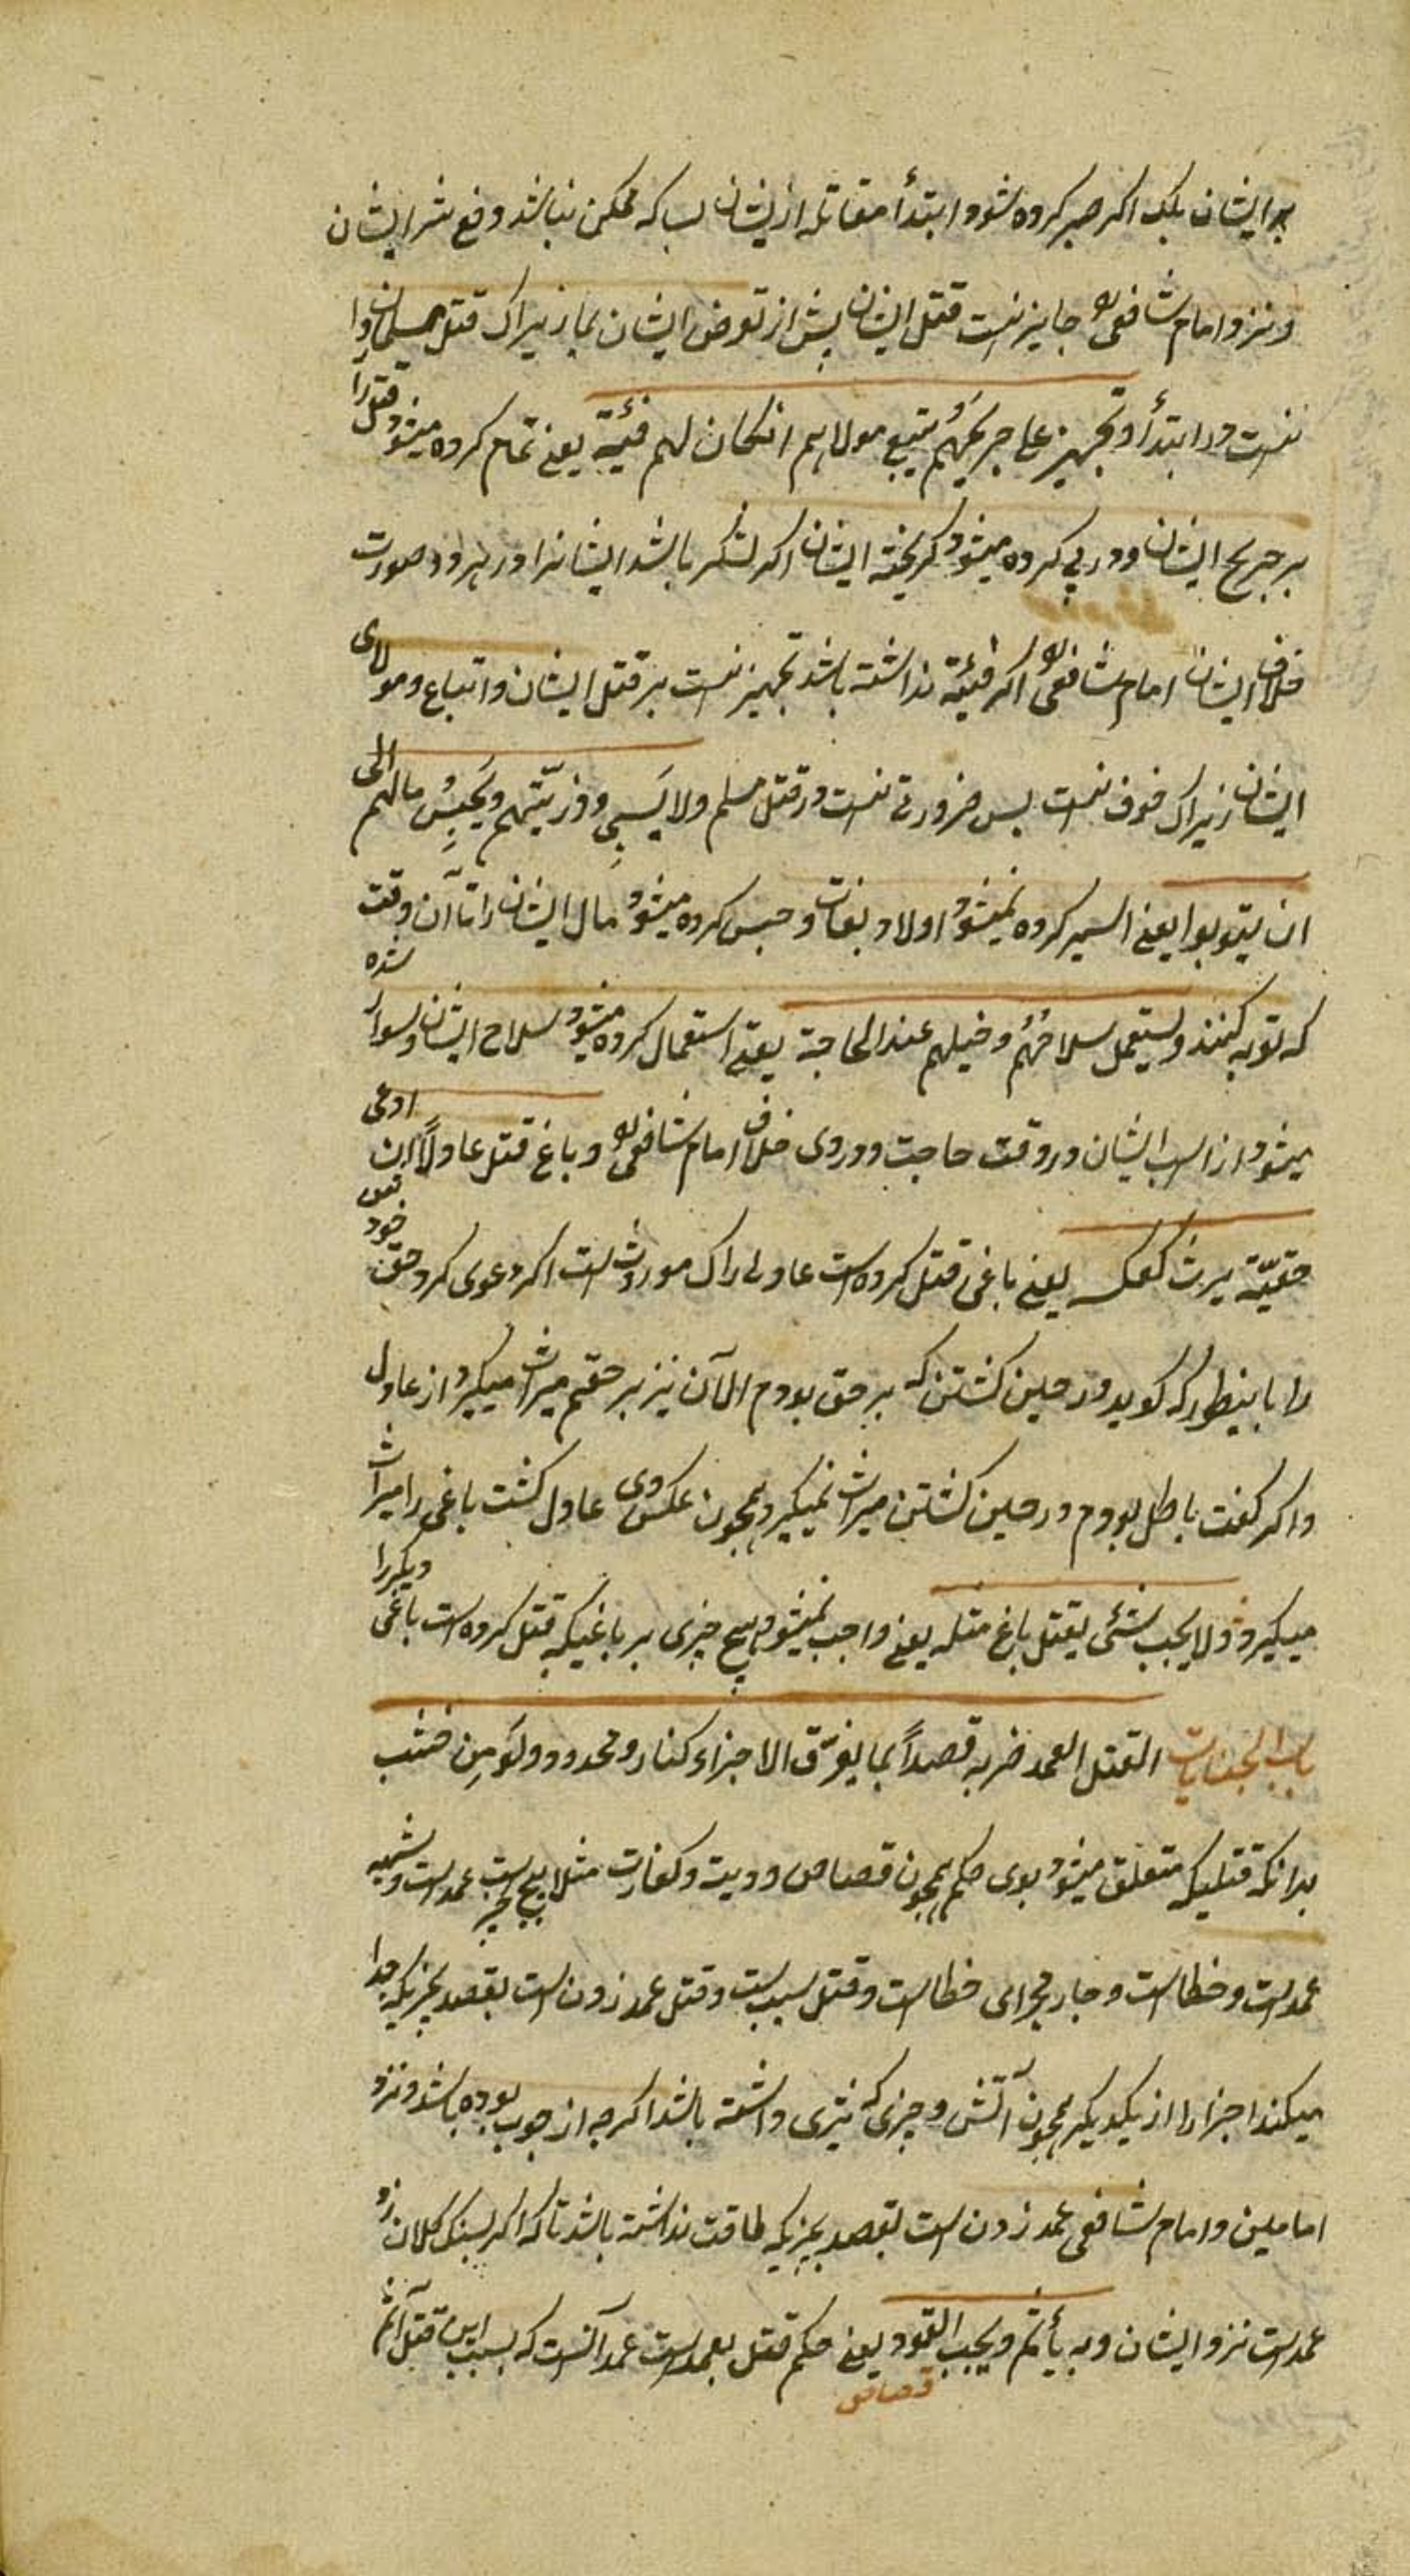 بر ایشان بلک اکر صبر کرده شود ابتدأ مقاتله از یشان بسا که ممکن نباشد دفع شر ایشان
و نزد امام شافعی جایز نیست قتل ایشان پیش از تعرض ایشان بما زیراک قتل مسلمان روا
نیست در ابتدأ و تجهیز علی جریحهم و یتبع مولاهم انکان لهم فئیة یعنی تمام کرده میشود قتل را
بر جریح ایشان و در پی کرده میشود کریخته ایشان اکر لشکر باشد ایشانرا در هر دو صورت
خلاف ایشان امام شافعی اکر فئیة نداشته باشد تجهیز نیست بر قتل ایشان و اتباع و مولای
ایشان زیراک خوف نیست بس ضرورتی نیست در قتل مسلم ولا یسبی وذریتهم ویحبس مالهم الی
ان یتوبوا یعنی اسیر کرده نمیشود اولاد بغات و حبس کرده میشود مال ایشان را تا آن وقت
که توبه کنند ویستعمل سلاحهم وخیلهم عند الحاجة یعنی استعمال کرده میشود سلاح ایشان و سوار شده
میشود از اسب ایشان در وقت حاجت و در وی خلاف امام شافعی و باغ قتل عادلاً ان ادعی
حقیّة یرث کعکسه یعنی باغی قتل کرده است عادلی راک موروث است اکر دعوی کرد حق خود
را باینطور که کوید در حین کشتن که بر حق بودم الآن نیز بر حقم میراث میکیرد از عادل
و اکر کفت باطل بودم در حین کشتن میراث نمیکیرد همچون عکس وی عادل کشت باغی را میراث
میکیرد ولا یجب شئی بقتل باغ مثله یعنی واجب نمیشود هیچ چیزی بر باغیکه قتل کرده است باغی دیکررا
باب الجنایات القتل العمد ضربه قصداً بما یفرّق الاجزاء کنار ومحدود ولو من خشب
بدانکه قتلیکه متعلق میشود بوی حکم همچون قصاص و دیت و کفارت مثلا پنج است عمد است و شبه
عمد است و خطا است و جار مجرای خطا است و قتل بسبب است و قتل عمد زدن است بقصد بچیزیکه جدا
میکند اجزا را از یکدیکر همچون آتش و چیزی که تیزی داشته باشد اکرچه از چوب بوده باشد و نزد
امامین و امام شافعی عمد زدن است بقصد بچیزیکه طاقت نداشته باشد تا که اکر بسنک کلان زد
عمد است نزد ایشان وبه یأثم ویجب القود یعنی حکم قتل بعمد است عمد آنست که بسبب این قتل آثم
قصاص